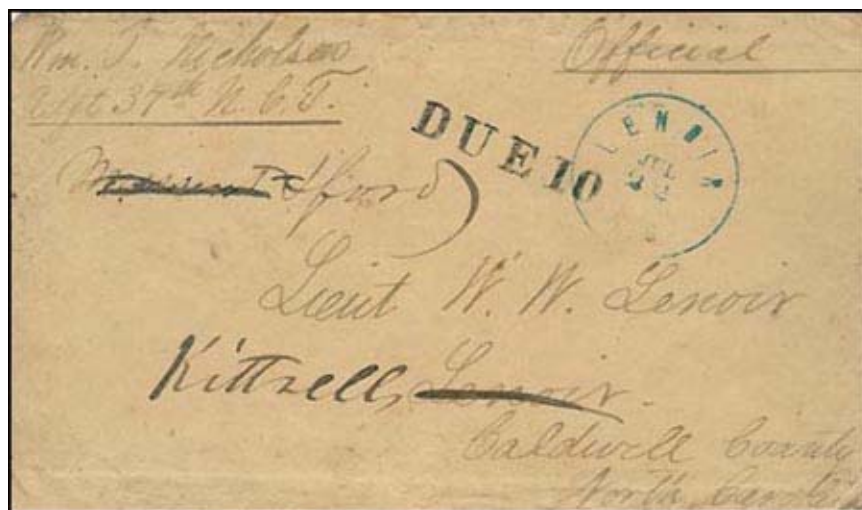 Wm. T. Nicholson
Official
Adjt 37th N. C. T.
DUE 10
LENOIR
JUL
22
Lieut W. W. Lenoir
Kittrell, Lenoir.
Caldwell County
North Carolina